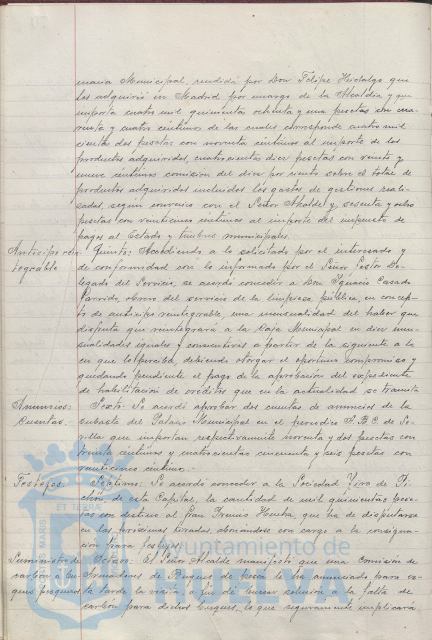 maria Municipal, rendida por Don Felipe Hidalgo que
los adquirió en Madrid por encargo de la Alcaldia y que
importa cuatro mil quinientas ochenta y una pesetas con cua-
renta y cuatro centimos de las cuales corresponde cuatro mil
cientas dos pesetas con noventa centimos al importe de los
productos adquiridos, cuatrocientas diez pesetas con veinte y
nueve centimos comisión del diez por ciento sobre el total de
productos adquiridos incluidos los gastos de gestiones reali-
zadas, según convenio con el Señor Alcalde y, sesenta y ocho
pesetas con veinticinco centimos al importe del impuesto de
pagos al Estado y timbres municipales.
Anticipo rein-
tegrable
Quinto: Accediendo a lo solicitado por el interesado y
de conformidad con lo informado por el Señor Gestor De-
legado del Servicio, se acordó conceder a Don Ignacio Casado
Garrido, obrero del servicio de la limpieza pública, en concep-
to de anticipo reintegrable, una mensualidad del haber que
disfruta que reintegrará a la Caja Municipal en diez men-
sualidades iguales y consecutivas a partir de la siguiente a la
en que lo perciba, debiendo otorgar el oportuno compromiso y
quedando pendiente el pago de la aprobación del expediente
de habilitación de créditos que en la actualidad se tramita
Anuncios.
Cuentas.
Sexto: Se acordó aprobar dos cuentas de anuncios de la
subasta del Palacio Municipal en el periodico A.B.C. de Se-
villa que importan respectivamente noventa y dos pesetas con
treinta centimos y cuatrocientas cincuenta y seis pesetas con
veinticinco centimos.
Festejos.
Septimo: Se acordó conceder a la Sociedad Tiro de Pi-
chón de esta Capital, la cantidad de mil quinientas pese-
tas con destino al Gran Premio Huelva, que ha de disputarse
en las próximas tiradas, abonandose con cargo a la consigna-
ción para festejos.
Suministro de
carbon a bu-
ques pesqueros
Octavo: El Señor Alcalde manifestó que una Comisión de
Armadores de Buques de pesca le ha anunciado para es-
ta tarde la visita, a fin de buscar solución a la falta de
carbón para dichos buques, lo que seguramente implicará
Ayuntamiento de
HUELVA